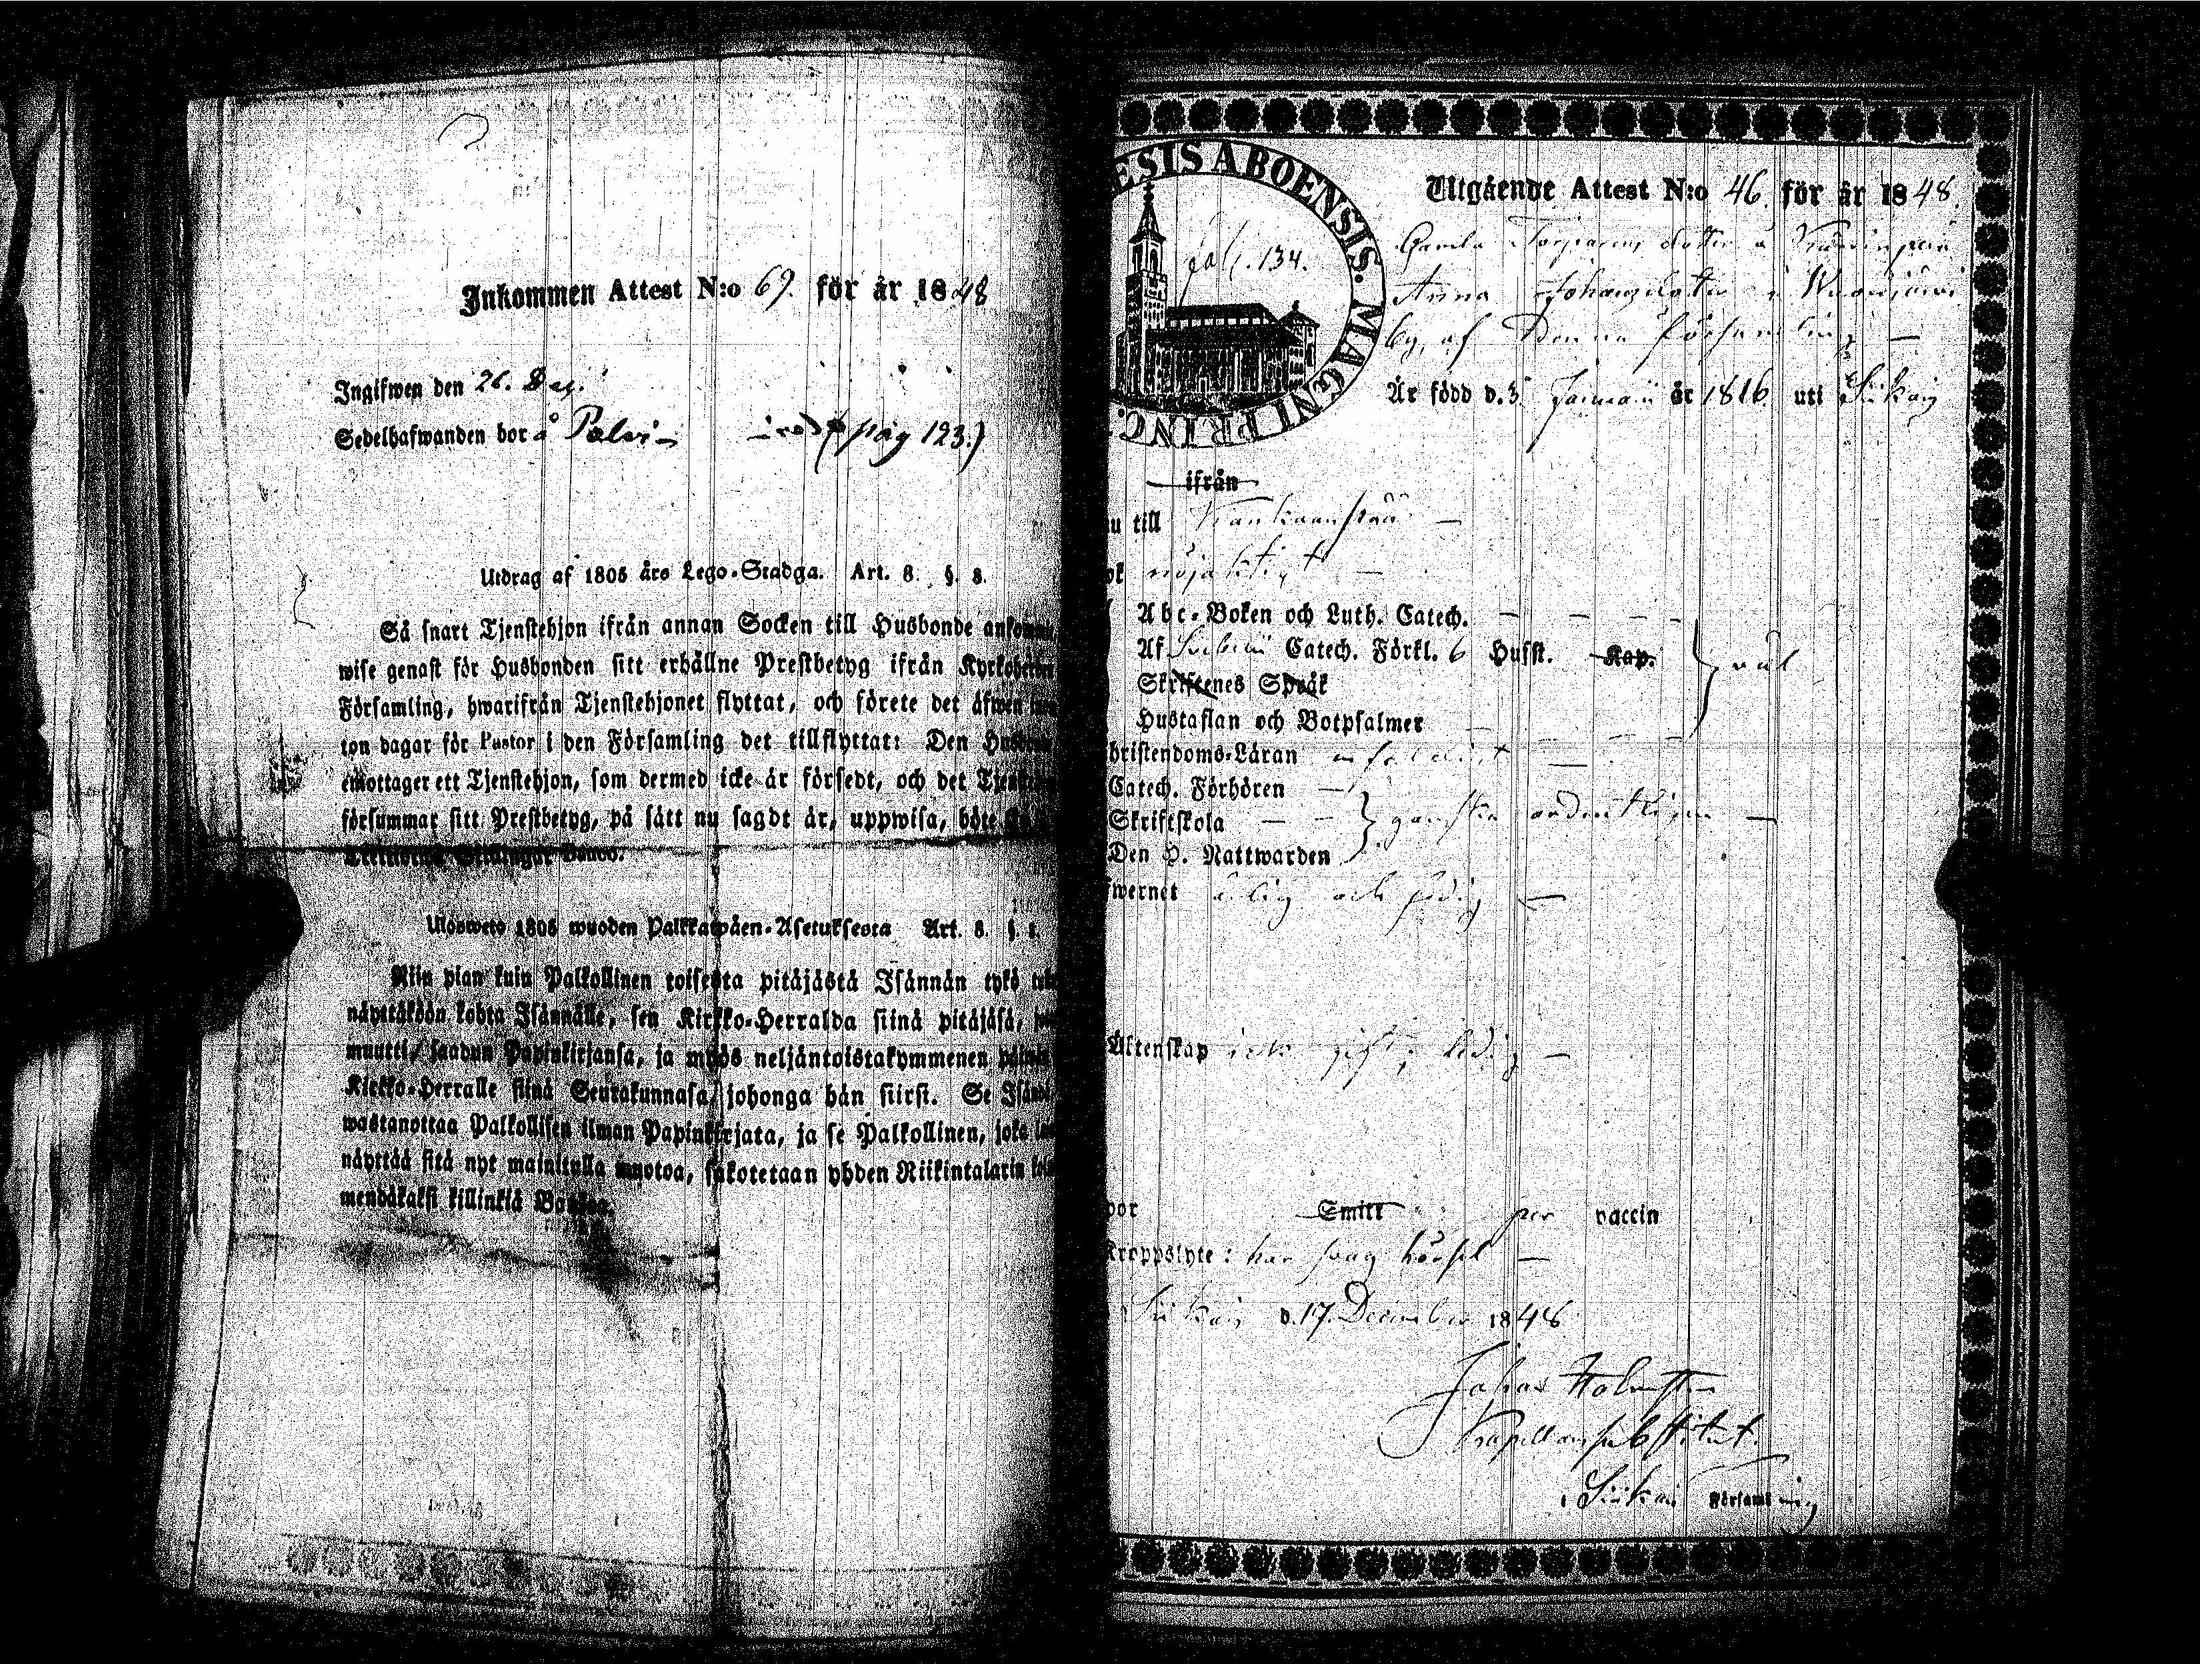 Inkommen Attest N:o 69. för år 1848
Ingifwen den 26. Dec.
Sedelhafwanden bor å Palvi (pag 123.)
Utdrag af 1805 års Lego-Stadga. Art. 8. §. 8.
Så snart Tjenstehjon ifrån annan Socken till Husbonde
wise genast för Husbonden sitt erhållne Prestbetyg ifrån
Församling, hwarifrån Tjenstehjonet flyttat, och förete det äfwen
ton dagar för Pastor i den Församling det tillflyttat: Den
emottager ett Tjenstehjon, som dermed icke är försedt, och det
försummar sitt Prestbetyg, på sätt nu sagdt är, uppwisa, böte
Banco.
Ulosweto 1805 wuoden Palkkawäen-Asetuksesta Art. 8. §.
Niin pian kuin Palkollinen toisesta pitäjästä Isännän tykö
näyttäköön kohta Isännälle, sen Kirkko-Herralda siinä pitäjäsä,
muutti, saadun Papinkirjansa, ja myös neljäntoistakymmenen
Kirkko-Herralle siinä Seurakunnasa, johonga hän siirst. Se
wastanottaa Palkollisen ilman Papinkirjata, ja se Palkollinen, joka
näyttää sitä nyt mainitulla muotoa, sakotetaan yhden Riikintalarin
mendäkaksi killinkiä
ESIS ABOENSIS. MAGNI PRINC.
fol. 134.
Utgående Attest N:o 46. för år 1848.
Gamla Torparens dotter å
Anna Johansdotter i
by, af Denna församling
Är född d. 3 Januari år 1816 uti Siikais
ifrån
till
nöjaktigt
Abc-Boken och Luth. Catech.
Af Catech. Förkl. 6 Hufst. Kap.
Skriftenes Språk
väl
Hustaflan och Botpsalmer
hristendoms-Läran enfaldigt
Catech. Förhören
Skriftskola ganska ordentligen
Den H. Nattwarden
fwernet ärlig och sedig
Äktenskap icke gift, ledig
Smitt per vaccin
Kroppslyte: har svag hörsel
Siikais d. 17 December 1848
Johan Holmsten
Kapellanssubstitut.
Siikais Församling